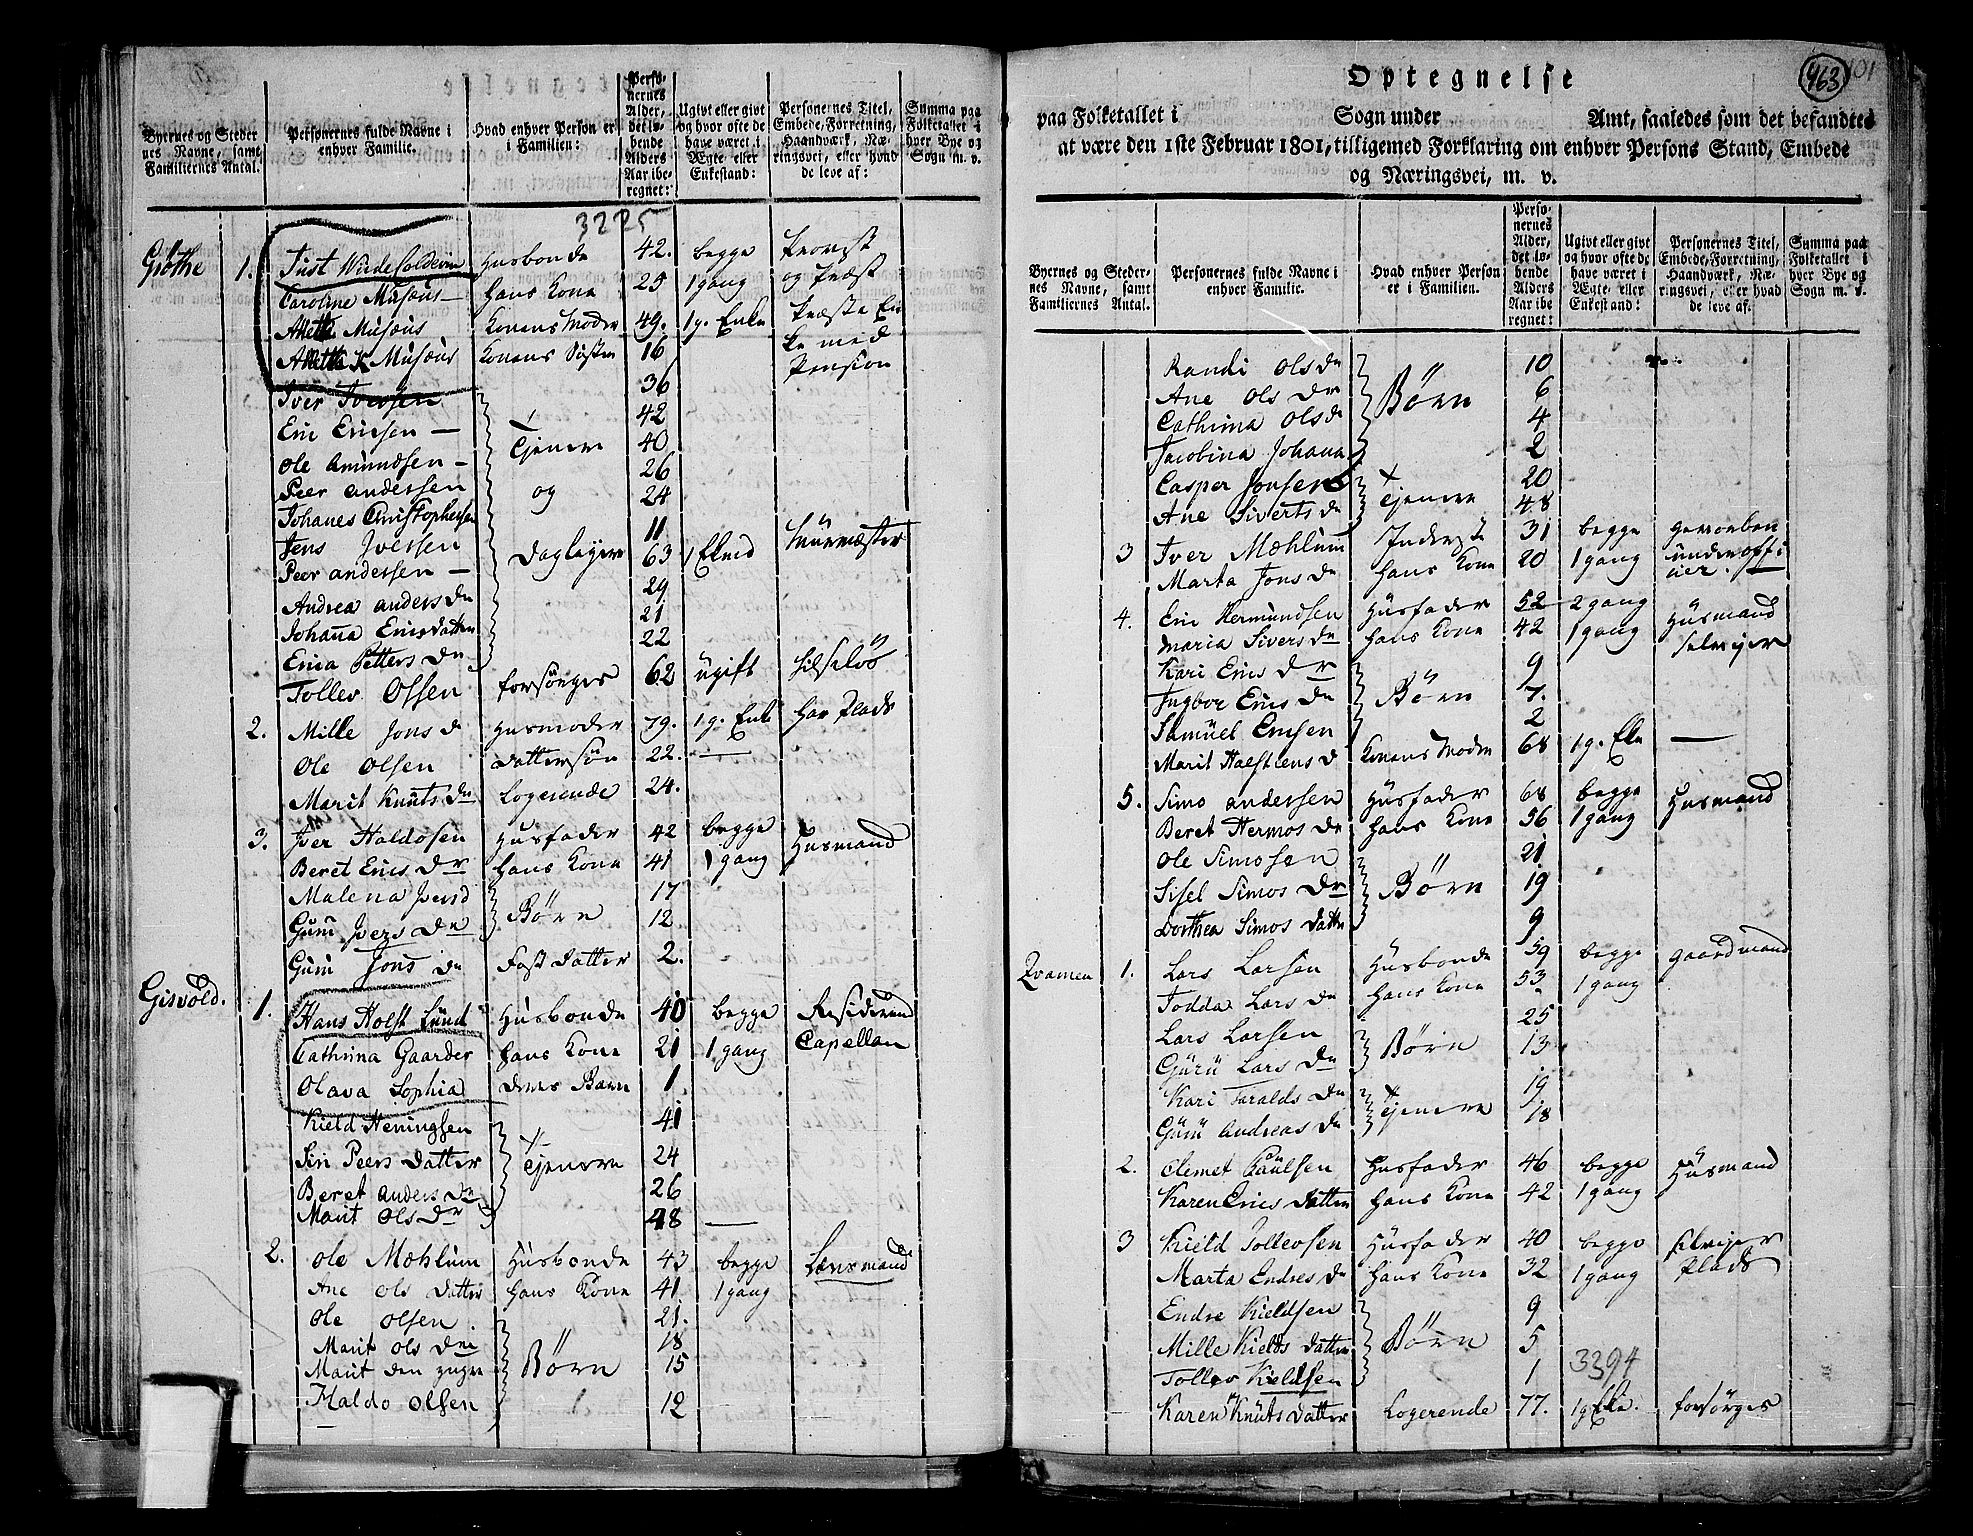 Byernes og Steder
nes Navne, samt
Familiernes Antal.
Personernes fulde Navne i
enhver Familie.
Hvad enhver Person er
i Familien:
Perso-
nernes
Alder,
det lø-
bende
Alders
Aar ibe-
regnet:
Ugivt eller givt
og hvor ofte de
have været i
Ægte eller
Enkestand:
Personernes Titel,
Embede, Forretning,
Haandværk, Næ-
ringsvei, eller hvad
de leve af:
Summa paa
Folketallet i
hver Bye og
Sogn m. v.
3225
Grøthe 1. Just Husbonde 42. begge Provst
Caroline Musæus hans Kone 25 1 gang og Præst
Musæus Konens Moder 49. 1 g. Enke Præste En
Musæus Konens Søster 16 ke med
Pension
Iver Iversen 36
Eric Ericsen 42
Ole Amundsen Tienere 40
Peer Andersen 26
Johanes Christophersen og 24
Jens Iversen 11
Peer Andersen Daglejere 63 1 Murmæster
Andrea Anders Dr 29
Johana Erics Datter 21
Erica Petters Dr 22
Tollev Olsen forsørges 62 ugift
2. Mille Jons d Husmoder 79. 1 g. Enke har Plads
Ole Olsen Dattersøn 22.
Marit Knuts Dr Logerende 24.
3. Iver Haldosen Husfader 42 begge Husmand
Beret Erics Dr hans Kone 41 1 gang
Malena Ivers d 17
Guru Ivers Dr Børn 12
Guru Jons Dr Fost Datter 2.
Gisvold. 1. Hans Holst Lund Husbonde 40 begge Residerend
Cathrina Gaarder hans Kone 21 1 gang Capellan
Olava Sophia deres Barn 1
Kield Heningsen 41
Siri Peers Datter Tjenere 24
Beret Anders Dr 26
Marit Ols Dr 48
2. Ole Mæhlum Husbonde 43 begge Lænsmand
Ane Ols Datter hans Kone 41 1 gang
Ole Olsen 21.
Marit Ols Dr 18
Marit den yngre Børn 15
Haldo Olsen 12
463
101
Optegnelse
paa Folketallet i Sogn under Amt, saaledes som det befandtes
at være den 1ste Februar 1801, tilligemed Forklaring om enhver Persons Stand, Embede
og Næringsvei, m. v.
Byernes og Steder-
nes Navne, samt
Familiernes Antal.
Personernes fulde Navne i
enhver Familie.
Hvad enhver Person
er i Familien.
Perso-
nernes
Alder,
det lø-
bende
Alders
Aar ibe
regnet:
Ugivt eller givt
og hvor ofte de
have været i
Ægte eller
Enkestand:
Personernes Titel,
Embede, Forretning,
Haandværk, Næ-
ringsvei, eller hvad
de leve af.
Summa paa
Folketallet i
hver Bye og
Sogn m. v.
Randi Ols Dr 10
Ane Ols Dr Børn 6
Cathrina Ols Dr 4
Jacobina Johana 2
Casper Jonsen 20
Ane Siverts Dr Tjenere 48
3 Iver Mæhlum Inderste 31 begge gevorben
Marta Jons Dr hans Kone 20 1 gang underoffi
cier.
4. Eric Hermundsen Husfader 52 2 gang Husmand
Maria Sivers Dr hans Kone 42 1 gang selvejer
Kari Erics Dr 9
Ingbor Erics Dr Børn 7.
Samuel Ericsen 2
Marit Halstens D Konens Moder 68 1 g.
5. Simo Andersen Husfader 68 begge Husmand
Beret Hermos Dr hans Kone 56 1 gang
Ole Simosen 21
Sisel Simos Dr Børn 19
Dorthea Simos Datter 9
Qvamen 1. Lars Larsen Husbonde 59 begge gaardmand
Todda Lars Dr hans Kone 53 1 gang
Lars Larsen 25
Guru Lars Dr Børn 13
Kari Taralds Dr 19
Guru Andreas Dr Tjenere 18
2. Clemet Paulsen Husfader 46 begge Husmand
Karen Erics Datter hans Kone 42 1 gang
3 Kield Tollevsen Husfader 40 begge selvejer
Marta Endres Dr hans Kone 32 1 gang Plads
Endre Kieldsen 9
Mille Kields Datter Børn 5
Tollev Kieldsen 1
3394
Karen Knuts Datter Logerende 77. 1 g forsørges